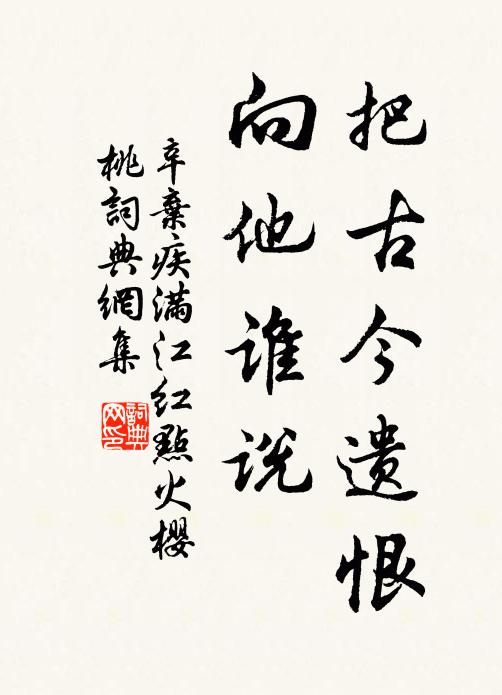 把古今遗恨
向他谁说
辛棄疾满江红點火櫻
桃詞典網集
詞典网印